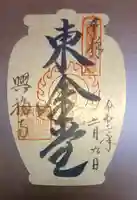 奉拝
令和二年
二月九日
東金堂
興福寺